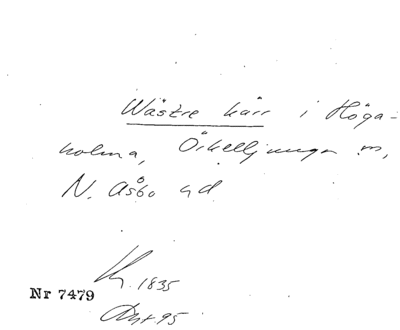 Wästre kärr i Höga-
holma, Örkelljunga sn,
N. Åsbo hd
1835
Nr 7479
Avt. 95